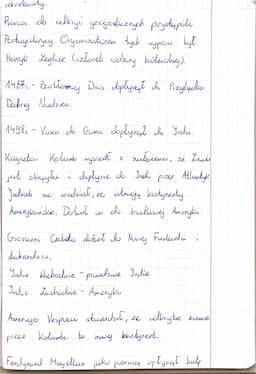 Pierwsi do odkryć geograficznych przystąpili
Portugalczycy. Organizatorem tych wypraw był
Henryk Żeglarz (członek rodziny królewskiej).
1487r. - Bartłomiej Dias dopłynął do Przylądka
Dobrej Nadziei.
1498r. - Vasco da Gama dopłynął do Indii.
Krzysztof Kolumb wyszedł z założenia, że Ziemia
jest okrągła i dopłynie do Indii przez Atlantyk
Jednak nie wiedział, że istnieją kontynenty
Amerykańskie. Dotarł on do środkowej Ameryki.
Giovanni Caboto dotarł do Nowej Fundlandii i
Labradoru.
Indie Wschodnie - prawdziwe Indie
Indie Zachodnie - Ameryka
Amerigo Vespucci stwierdził, że odkryte ziemie
przez Kolumba to nowy kontynent.
Ferdynand Magellan jako pierwszy opłynął kulę